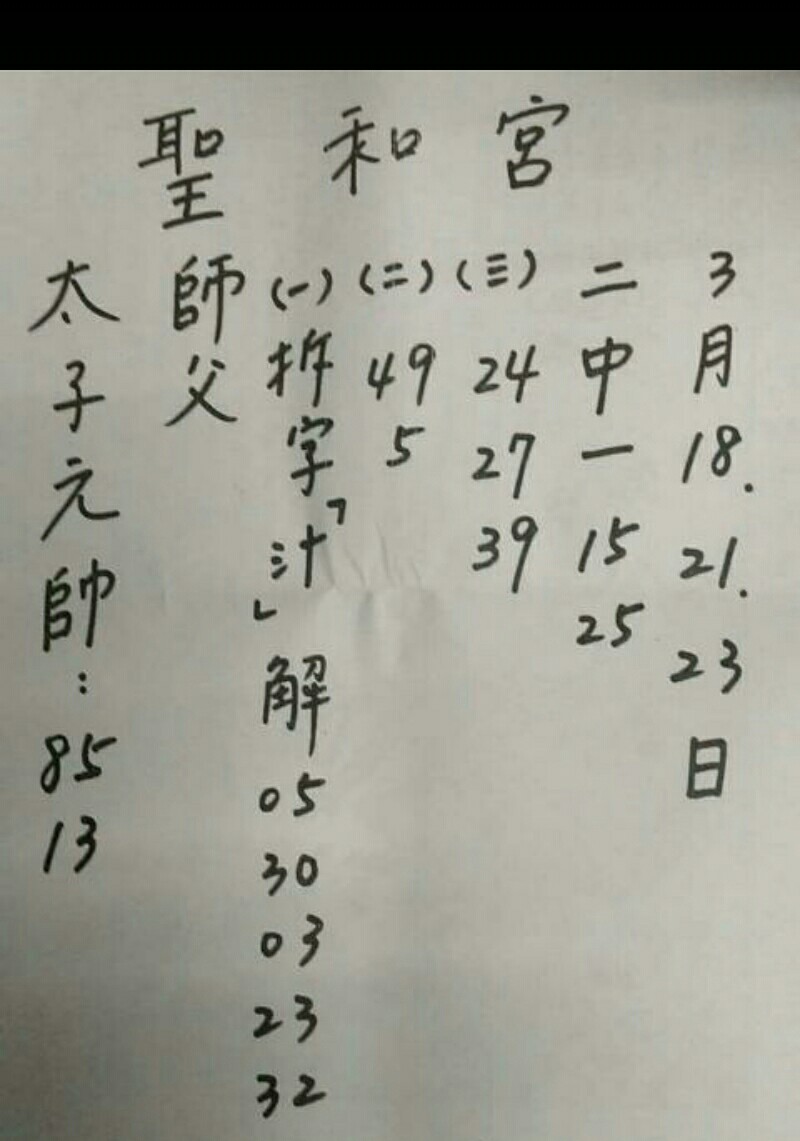 聖和宮
太子元帥:8513
師父
(一)拆字「汁」解0530032332
(二)495
(三)242739
二中一1525
3月18.21.23日